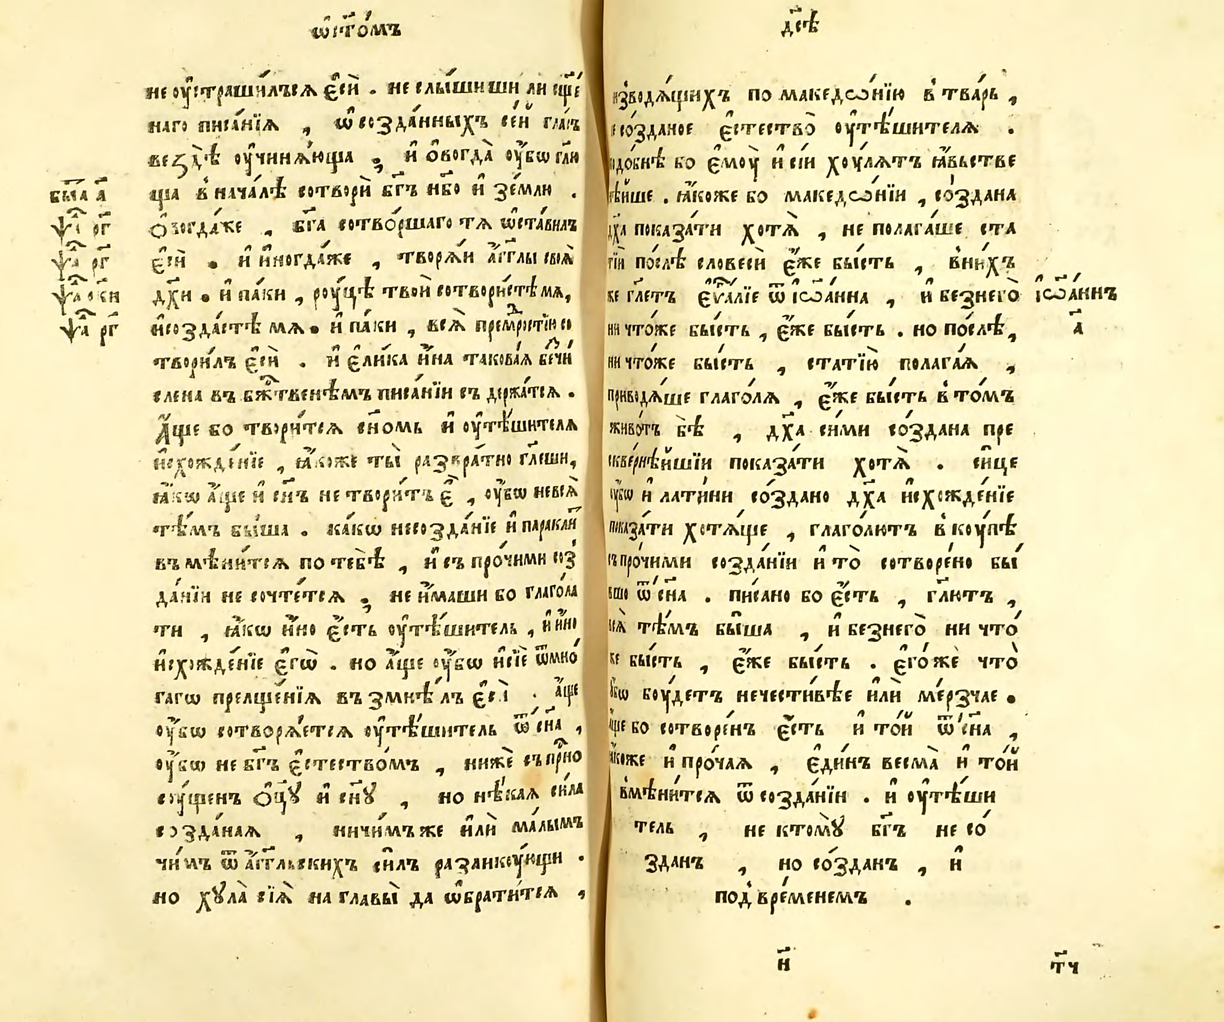 ѡ҆ с҃то́мъ
не ᲂу҆страши́лъсѧ є҆сѝ . не слы́шиши ли сщ҃е
наго писа́нїѧ , ѡ҆ созда́нныхъ сей гла́къ
везд̾ѣ̀ ᲂу҆чиня́юща , и҆ ѻ҆вогда̀ ᲂу҆́бѡ гл҃ю
ща в̾нача́лѣ сотворѝ бг҃ъ нб҃о и҆ зе́млю .
ѻ҆вогда́же , бг҃а сотво́ршаго тѧ ѡ҆ста́вилъ
є҆сѝ . и҆ и҆ногда́же , творѧ́и а҆́гг҃лы своѧ̀
дх҃и . и҆ па́ки , рꙋ́цѣ твои̑ сотвори́стѣ мѧ,
и҆ созда́стѣ мѧ . и҆ па́ки , всѧ̀ премꙋ́дростїю со
твори́лъ є҆сѝ . и҆ є҆ли́ка и҆́на такова́ѧ бечи́
слена въ бж҃твенѣмъ писа́нїи съ держа́тсѧ .
А҆́ще бо твори́тсѧ сн҃омь и҆ ᲂу҆тѣ́шителѧ
и҆схожде́нїе , ꙗ҆́коже ты̀ развра́тно гл҃еши,
ꙗ҆́кѡ а҆́ще и҆ сн҃ъ не твори́тъ є҆̀ , ᲂу҆́бѡ не всѧ̀
тѣ́мъ бы́ша . ка́кѡ не созда́нїе и҆ паракли́
въмѣни́тсѧ по тебѣ̀ , и҆ съ про́чими соз̾
да́нїи не сочте́тсѧ , не и҆́маши бо глаго́ла
ти , ꙗ҆́кѡ и҆́но є҆́сть ᲂу҆тѣ́шитель , и҆ и҆́но
и҆схожде́нїе є҆гѡ̀ . но а҆́ще ᲂу҆́бѡ и҆ сїѐ ѿ мно́
гагѡ прелще́нїѧ въ змнѣ́лъ є҆сѝ . а҆́ще
ᲂу҆́бѡ сотворѧ́етсѧ ᲂу҆тѣ́шитель ѿ сн҃а ,
ᲂу҆́бѡ не бг҃ъ є҆стество́мъ , нижѐ съ при́но
сꙋ́щенъ ѻ҆ц҃ꙋ̀ и҆ сн҃ꙋ , но нѣ́каѧ си́ла
созда́наѧ , ничи́мъ же и҆лѝ ма́лымъ
чи́мъ ѿ а҆́гг҃льскихъ си́лъ разликꙋ́ющи .
но хꙋла̀ сїѧ̀ на главы̀ да ѡ҆брати́тсѧ ,
бы́тїа а҃
ѱа҃ рг҃
ѱа҃ рг҃
ѱа҃ рг҃
дс҃ѣ
и҆зводѧ́щихъ по македѡ́нїю в̾ тва́рь ,
не со́зданое є҆стество̀ ᲂу҆тѣ́шителѧ .
подо́бнѣ бо є҆мᲂу҆̀ и҆ сїи хᲂу́лѧтъ ꙗ҆́вьстве
нѣ́йше . ꙗ҆́коже бо македѡ́нїи , со́здана
дх҃а показа́ти хотѧ̀ , не полага́ше ста
тїи̑ по́слѣ словеси̑ є҆́же бы́сть , в̾ ни́хъ
же гл҃етъ є҆ѵⷢ҇а́лїе ѿ і҆ѡа́нна , и҆ без̾ него̀
ни что́же бы́сть , є҆́же бы́сть . но по́слѣ,
ни что́же бы́сть , статїю̀ полага́ѧ ,
приводѧ́ше глаго́лѧ , є҆́же бы́сть в̾ то́мъ
живо́тъ бѣ̀ , дх҃а си́ми со́здана пре
скве́рнѣйшїи показа́ти хотѧ̀ . си́це
ᲂу҆́бѡ и҆ лати́ни со́здано дх҃а и҆схожде́нїе
показа́ти хотѧ́ще , глаго́лютъ в̾кᲂу́пѣ
съ про́чими созда́нїи и҆ то̀ сотворе́но бы́
вшо ѿ сн҃а . пи́сано бо є҆́сть , гл҃ютъ ,
всѧ̀ тѣ́мъ бы́ша , и҆ без̾ него̀ ни что́
же бы́сть , є҆́же бы́сть . є҆го́же что̀
ᲂу҆́бѡ бᲂу́детъ нечести́вѣе и҆лѝ ме́рзчае .
а҆́ще бо сотворе́нъ є҆́сть и҆ то́й ѿ сн҃а ,
ꙗ҆́коже и҆ про́чаѧ , є҆ди́нъ весма̀ и҆ то́й
в̾мѣни́тсѧ ѿ созда́нїи . и҆ ᲂу҆тѣ́ши
тель , не ктомꙋ̀ бг҃ъ не со́
зданъ , но со́зданъ , и҆
под̾ вре́менемъ .
і҆ѡа́ннъ
а҃
н҃
тч҃